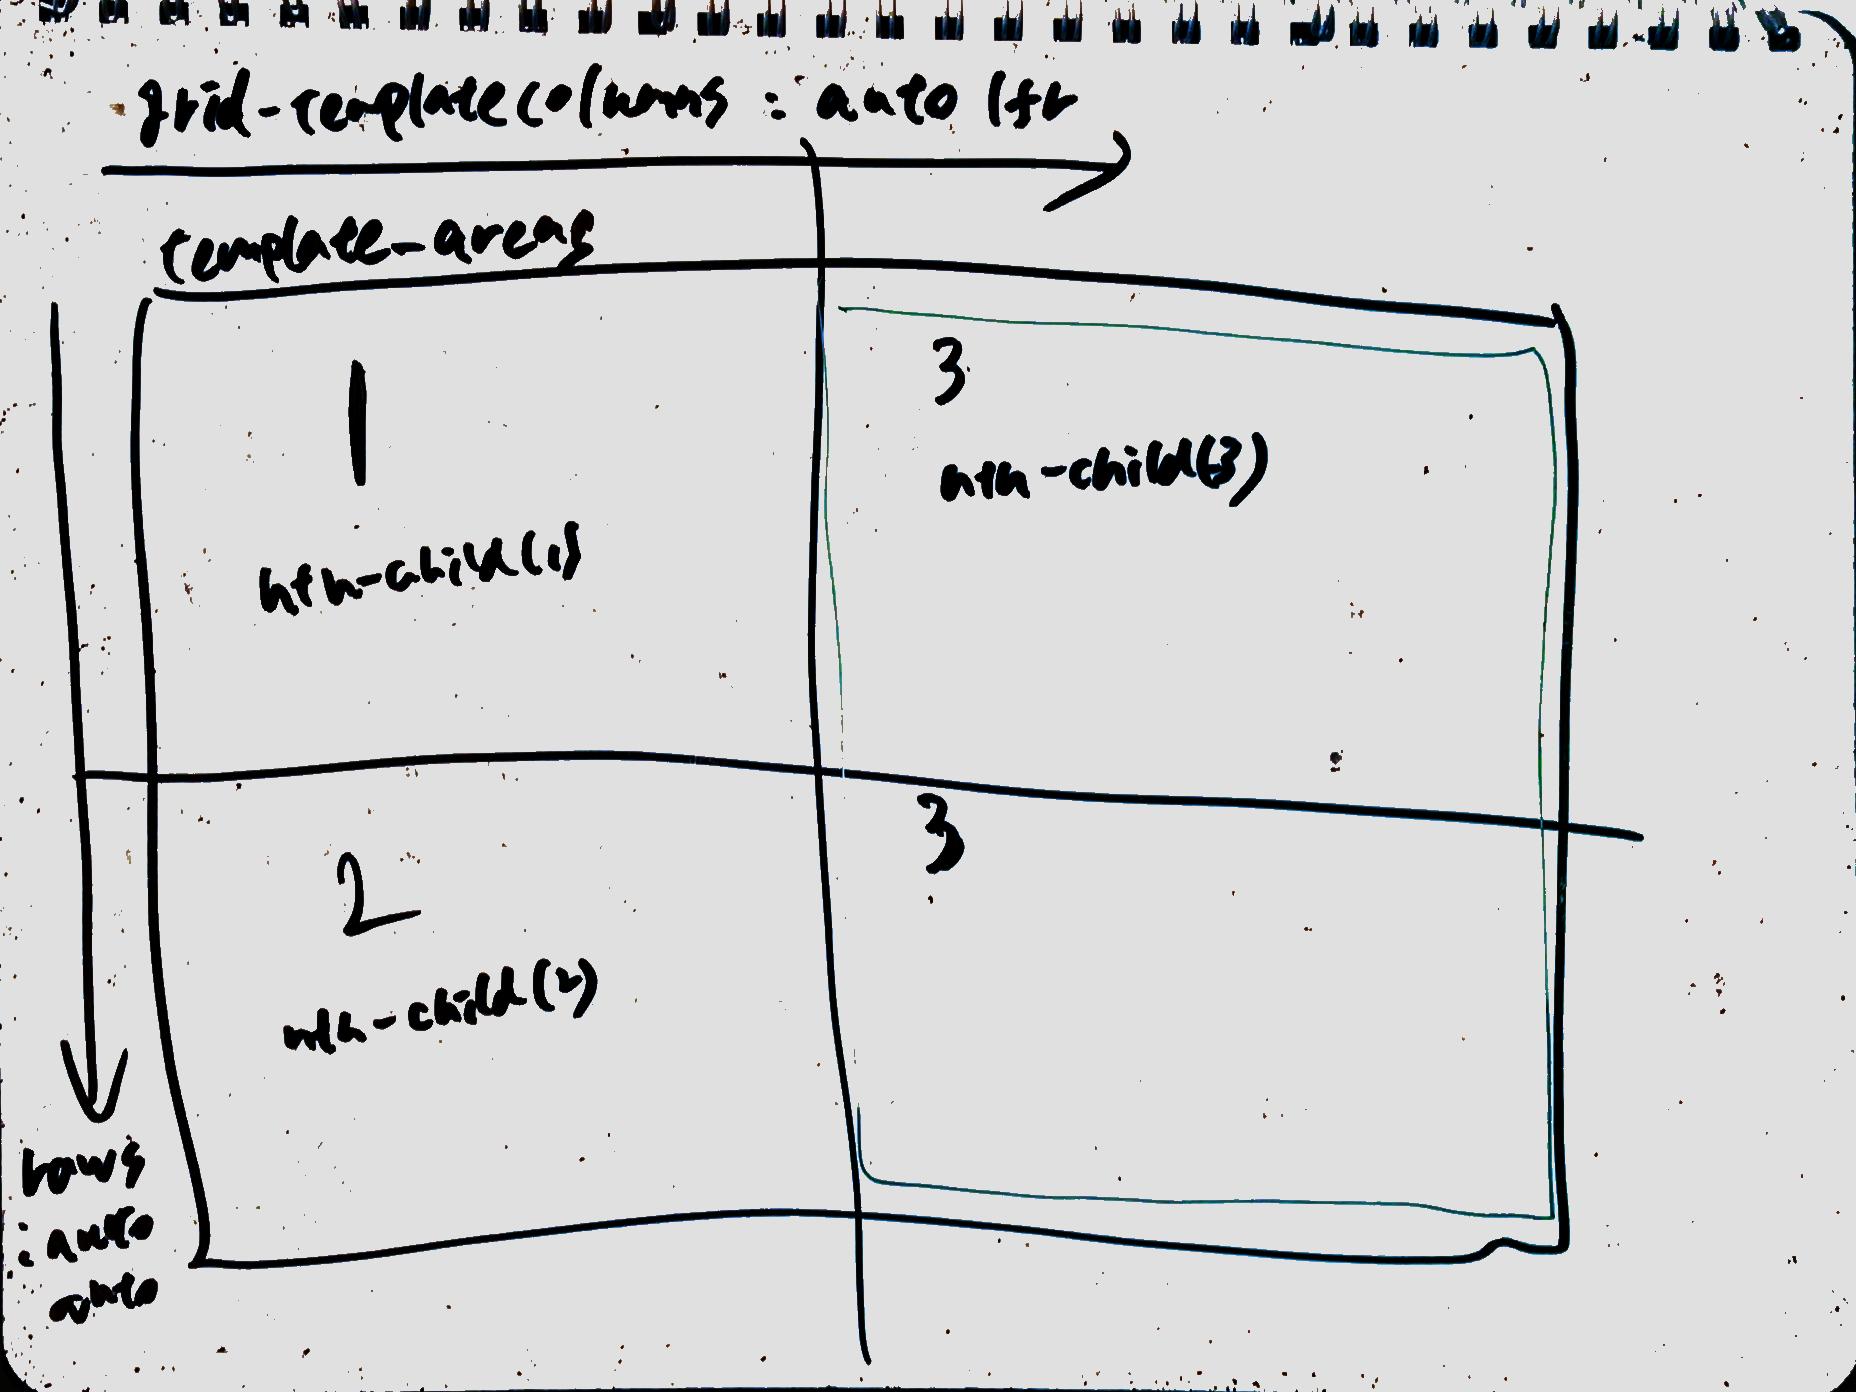 grid-templatecolumns : auto 1fr
template-areas
1
nth-child(1)
3
nth-child(3)
2
nth-child(2)
3
rows
: auto
auto